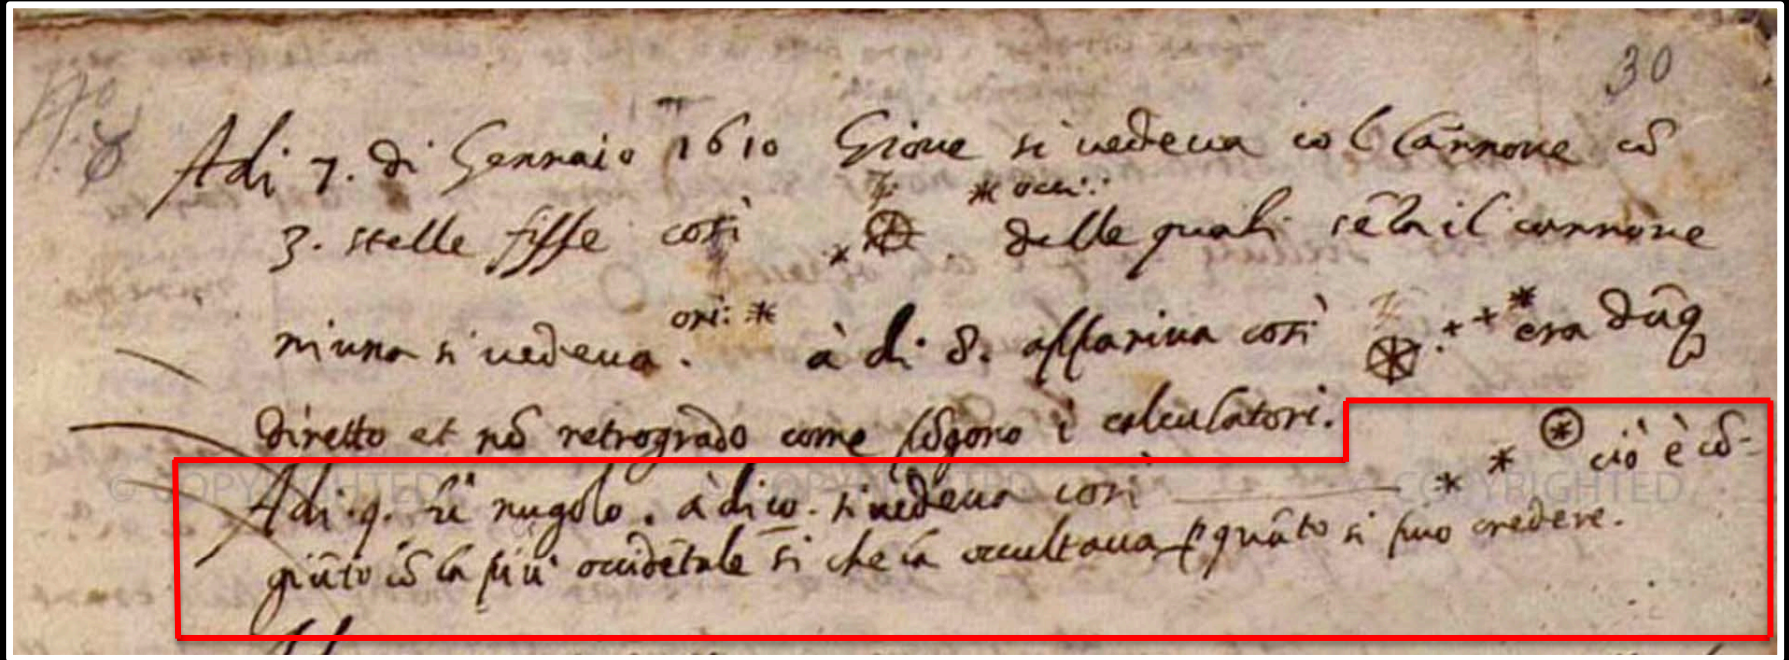 30
Adi 7. di Gennaio 1610 Giove si vedeva col Cannone cō
3. stelle fisse così delle quali sēza il cannone
occi:
niuna si vedeva. ori: à dì 8. appariva così era dūq
diretto et nō retrogrado come pōgono i calculatori.
Adi. 9. fù nugolo. à dì 10. si vedeva così ciò è cō-
giūto cō la più occidētale sì che la occultava p quāto si può credere.
© COPYRIGHTED COPYRIGHTED COPYRIGHTED